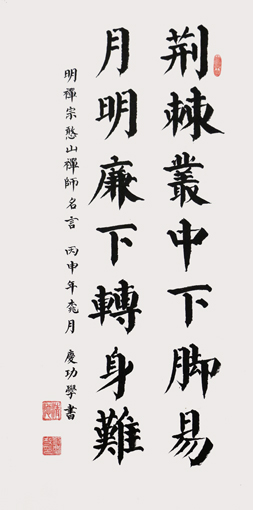 荆棘叢中下脚易
月明廉下轉身難
明禪宗憨山禪師名言 丙申年桃月 慶功學書